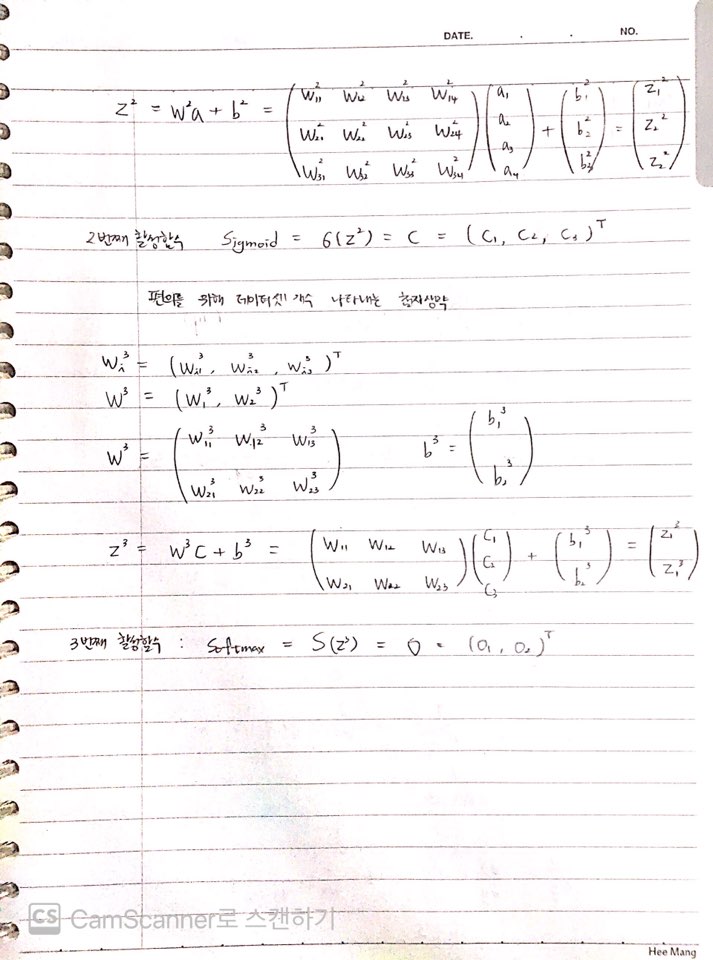 DATE. . . NO.
z² = w²a + b² = \begin{pmatrix} w_{11}^2 & w_{12}^2 & w_{13}^2 & w_{14}^2 \\ w_{21}^2 & w_{22}^2 & w_{23}^2 & w_{24}^2 \\ w_{31}^2 & w_{32}^2 & w_{33}^2 & w_{34}^2 \end{pmatrix} \begin{pmatrix} a_1 \\ a_2 \\ a_3 \\ a_4 \end{pmatrix} + \begin{pmatrix} b_1^2 \\ b_2^2 \\ b_3^2 \end{pmatrix} = \begin{pmatrix} z_1^2 \\ z_2^2 \\ z_2^2 \end{pmatrix}
2번째 활성함수 Sigmoid = σ(z²) = C = (C₁, C₂, C₃)ᵀ
편의를 위해 데이터셋 개수 나타내는 첨자생략
w_i^3 = (w_{i1}^3, w_{i2}^3, w_{i3}^3)^T
W³ = (w_1^3, w_2^3)^T
W³ = \begin{pmatrix} w_{11}^3 & w_{12}^3 & w_{13}^3 \\ w_{21}^3 & w_{22}^3 & w_{23}^3 \end{pmatrix} b³ = \begin{pmatrix} b_1^3 \\ b_2^3 \end{pmatrix}
z³ = w³C + b³ = \begin{pmatrix} w_{11} & w_{12} & w_{13} \\ w_{21} & w_{22} & w_{23} \end{pmatrix} \begin{pmatrix} C_1 \\ C_2 \\ C_3 \end{pmatrix} + \begin{pmatrix} b_1^3 \\ b_2^3 \end{pmatrix} = \begin{pmatrix} z_1^3 \\ z_1^3 \end{pmatrix}
3번째 활성함수 : Softmax = S(z³) = O = (O₁, O₂)ᵀ
CS CamScanner로 스캔하기
Hee Mang